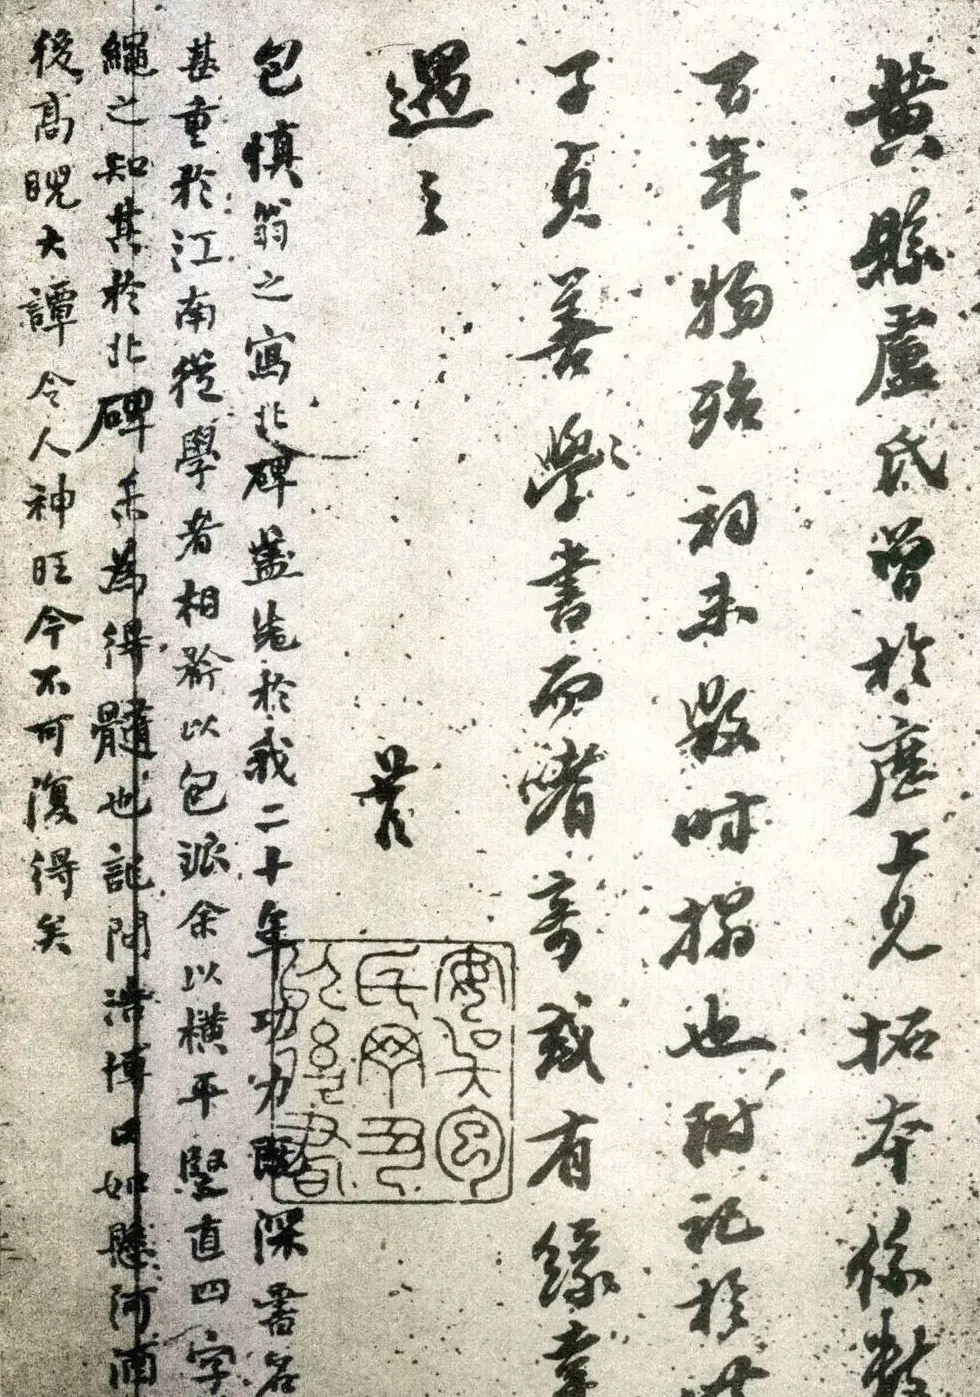 黄縣盧氏曾於廛上見拓本係數
百年物殆初未毀時搨也附記於此
子貞善學書而嗜奇或有緣幸
遇之
叟
包慎翁之寫北碑蓋先於我二十年功力既深書名
甚重於江南從學者相矜以包派余以橫平豎直四字
繩之知其於北碑未為得髓也記問浩博口如懸河酒
後高睨大譚令人神旺今不可復得矣